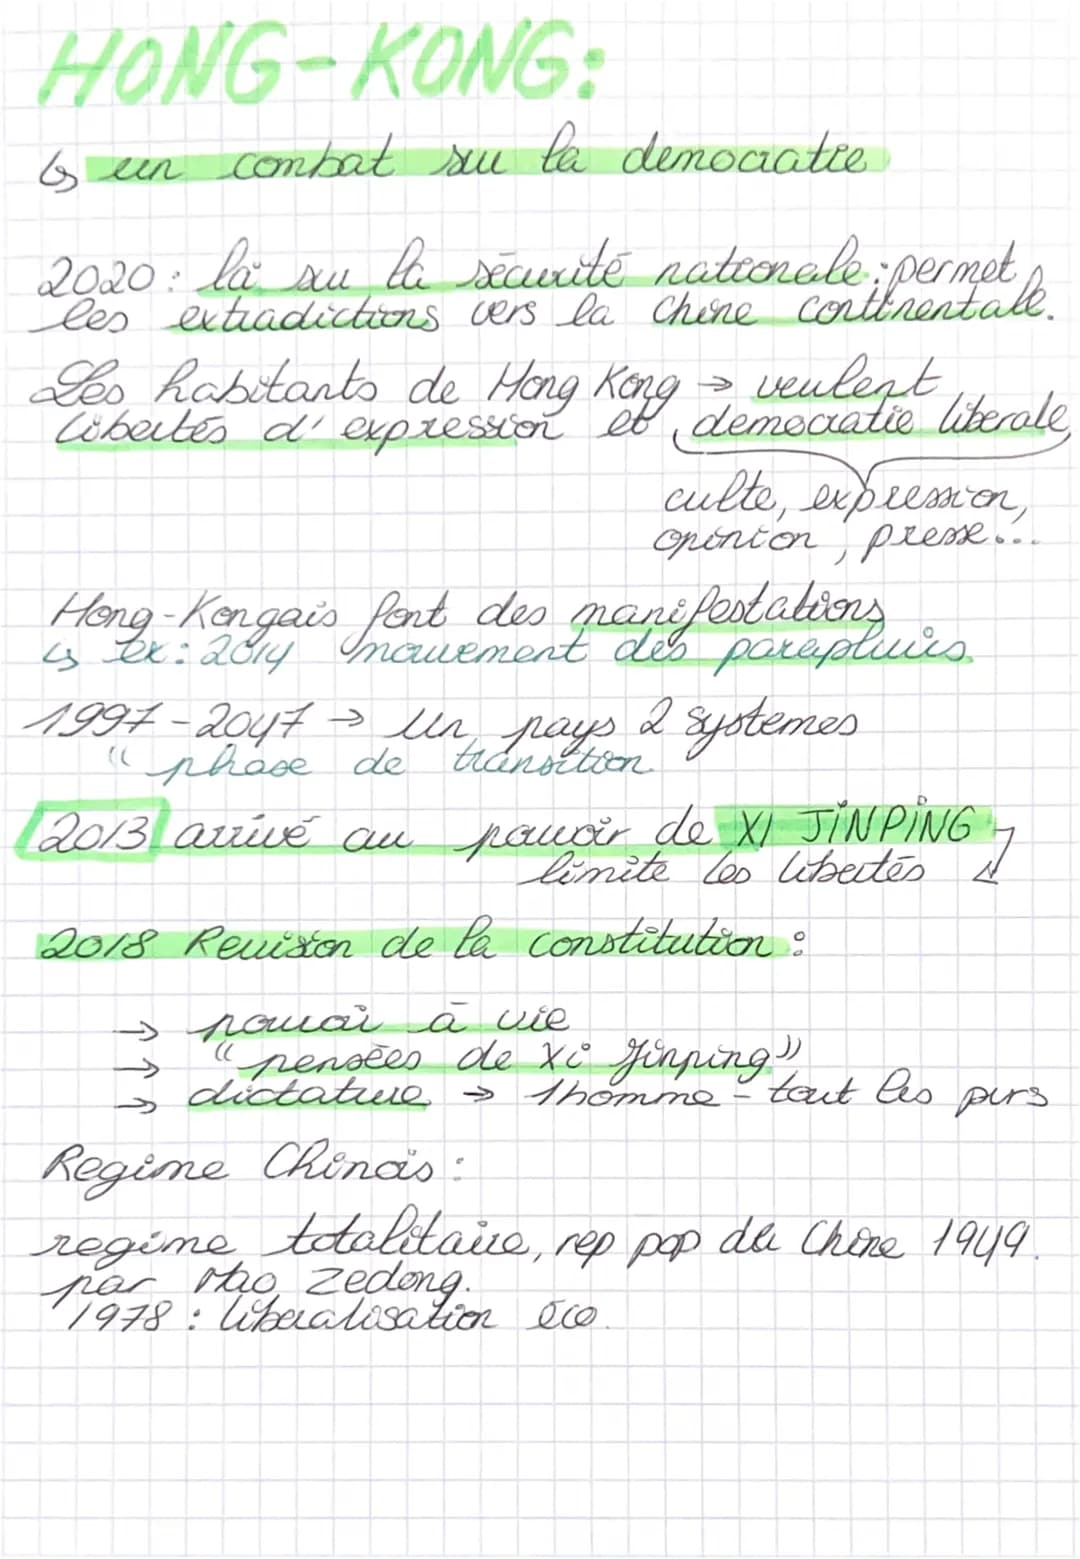 HONG-KONG:
↳ un combat sur la democratie
2020: loi sur la sécurité nationale: permet
les extradictions vers la Chine continentale.
Les habitants de Hong Kong → veulent
libertés d'expression et democratie liberale
culte, expression,
opinion, presse...
Hong-Kongais font des manifestations
↳ ex: 2014 mouvement des parapluies
1997-2047 → Un pays 2 systemes
" phase de transition
2013 arrivé au pouvoir de XI JINPING
limite les libertés
2018 Revision de la constitution:
→ pouvoir à vie
→ "pensées de Xi Jinping"
→ dictature → 1 homme - tout les pvrs
Regime Chinois:
regime totalitaire, rep pop de Chine 1949.
par Mao Zedong.
1978: liberalisation éco.